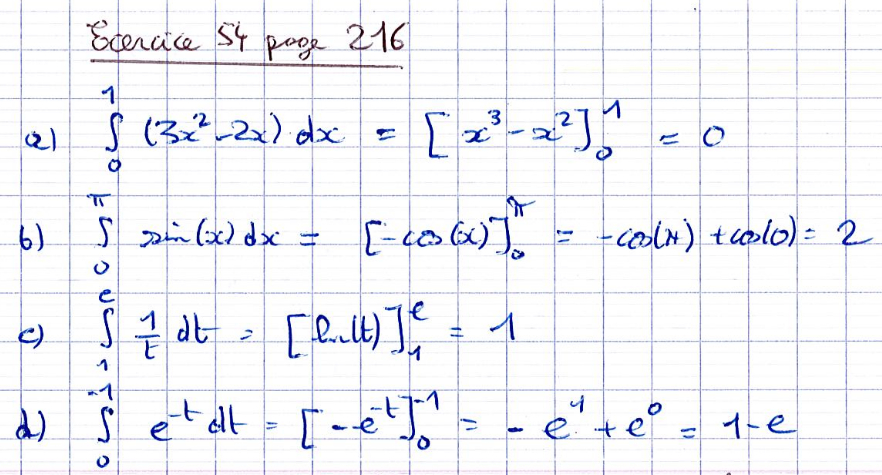 Exercice 54 page 216
a) ∫₀¹ (3x²-2x) dx = [x³-x²]₀¹ = 0
b) ∫₀^π sin(x) dx = [-cos(x)]₀^π = -cos(π) +cos(0) = 2
c) ∫₁^e 1/t dt = [ln(t)]₁^e = 1
d) ∫₀^-1 e^-t dt = [-e^-t]₀^-1 = -e¹ + e⁰ = 1-e